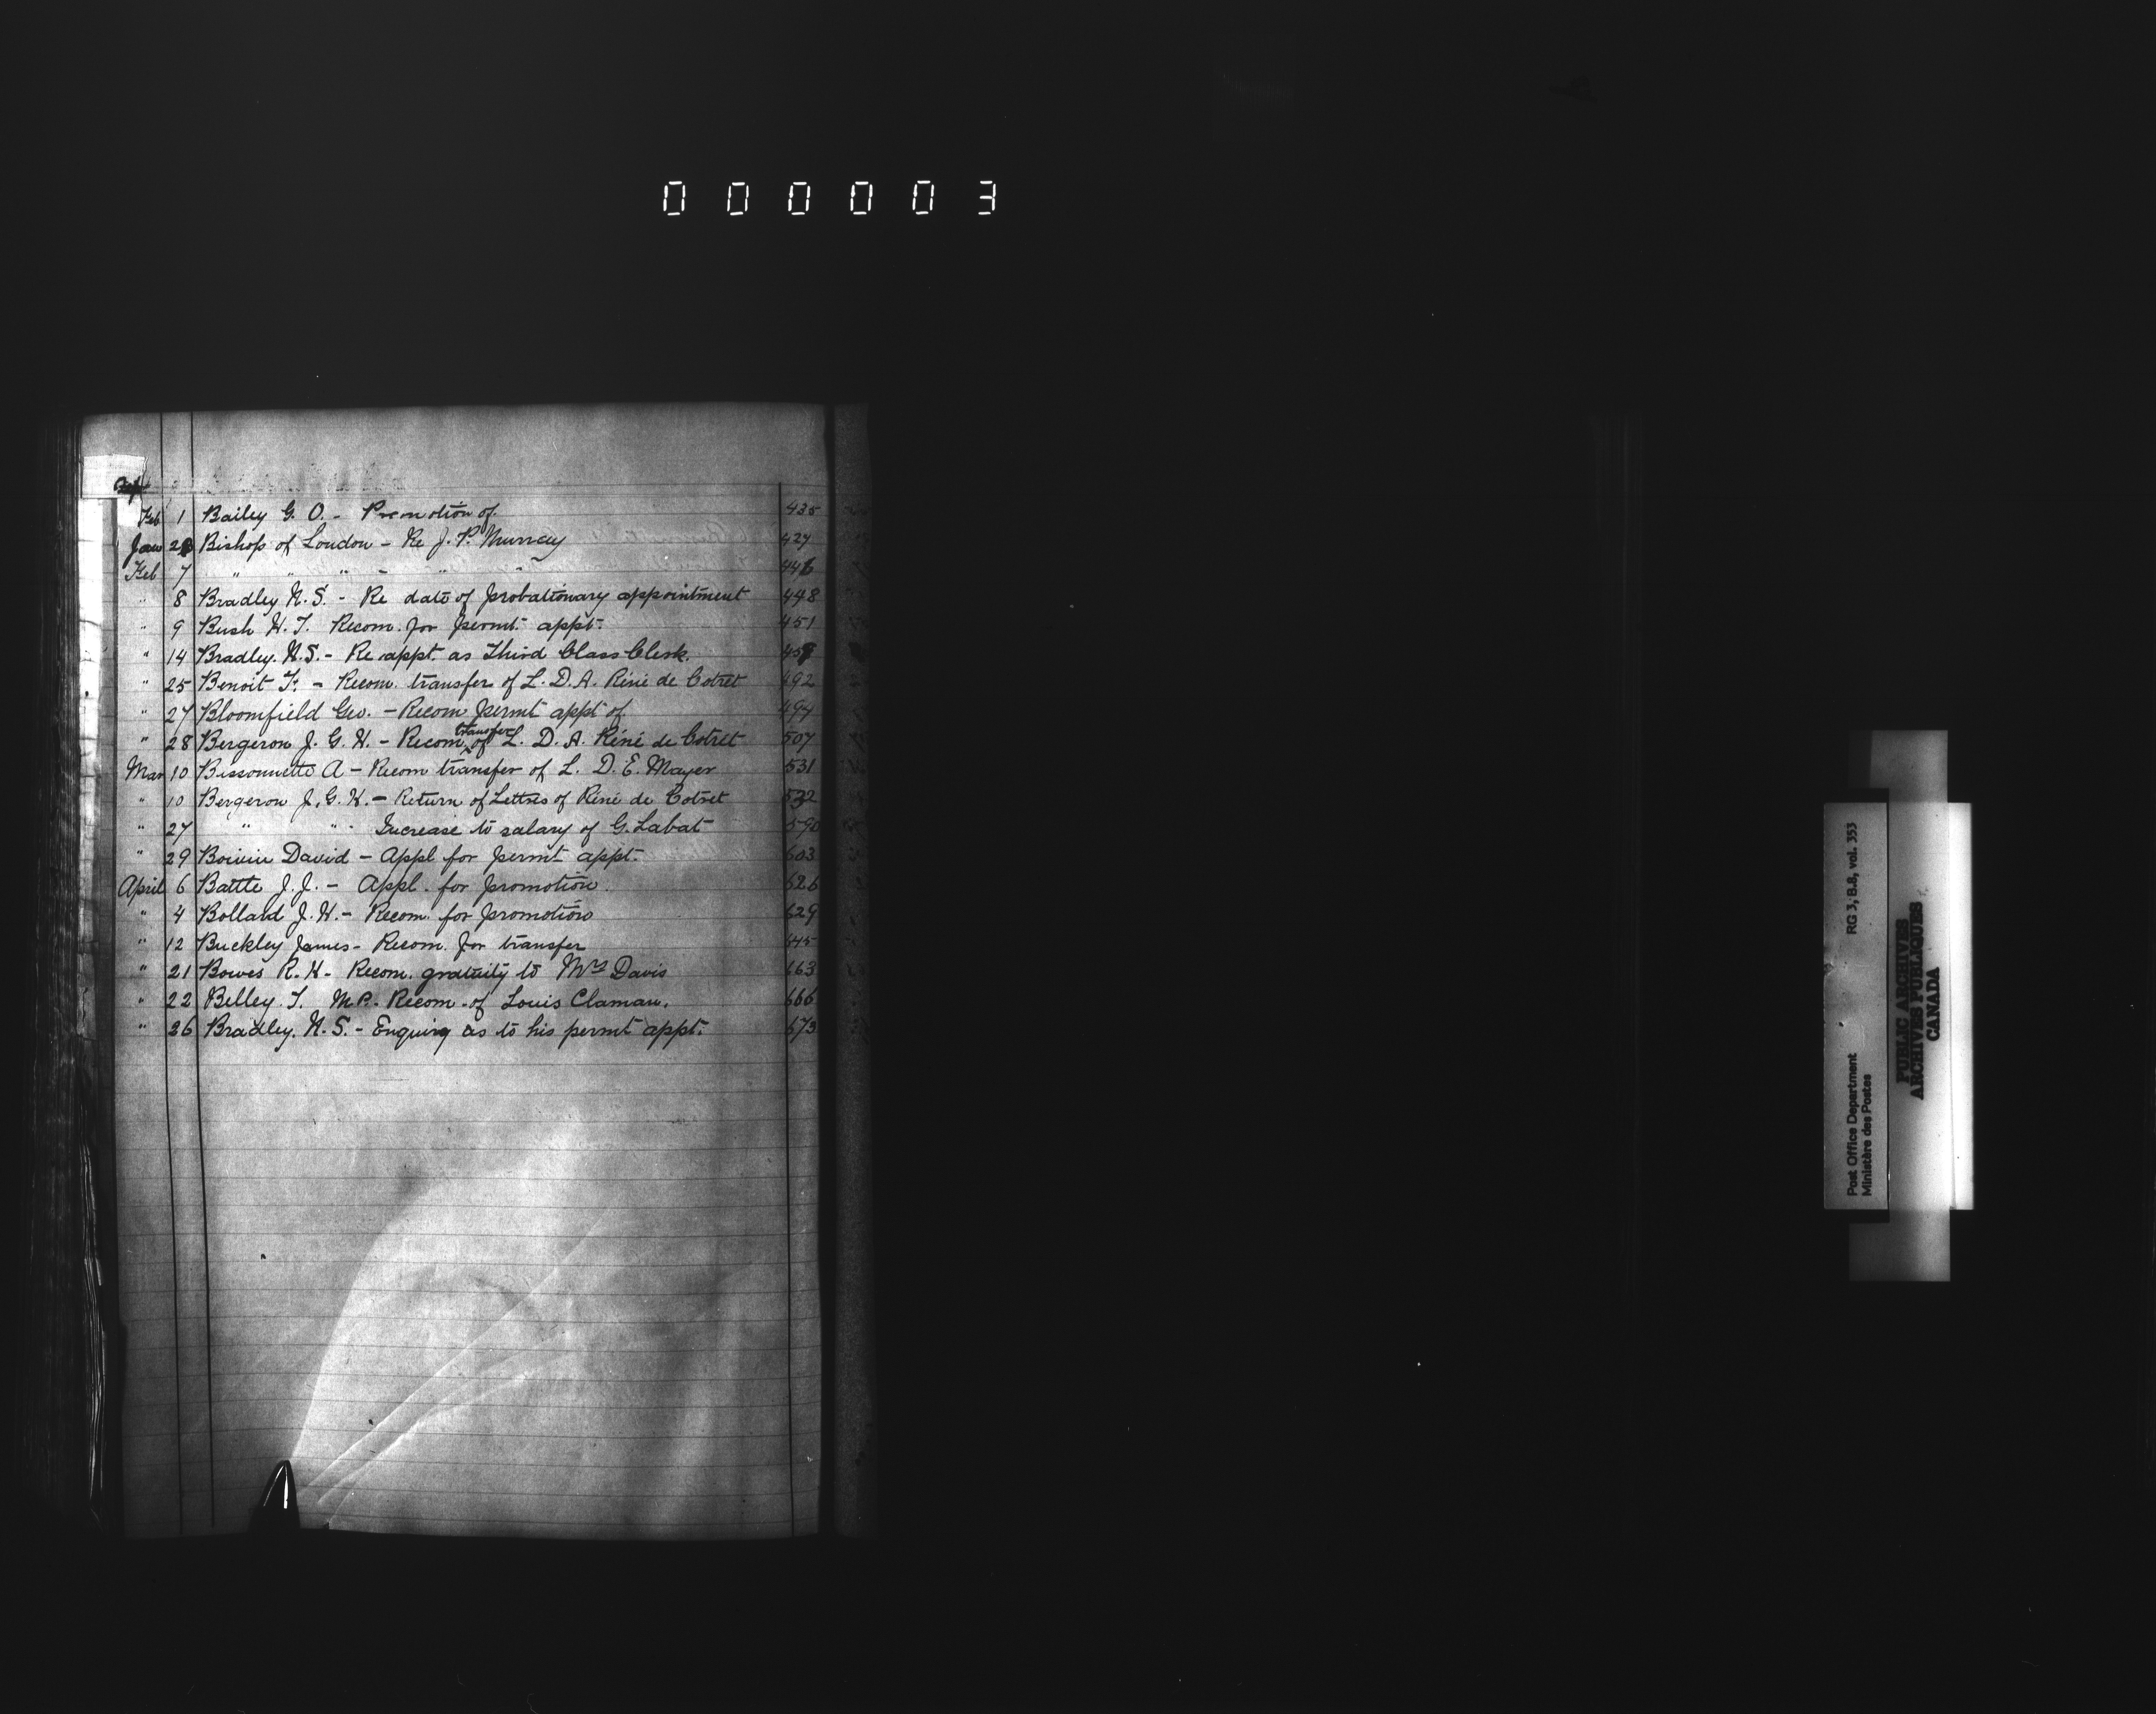 0 0 0 0 0 3
Feb 1 Bailey G. O. - Promotion of 435
Jan 28 Bishop of London - Re J. P. Murray 427
Feb 7 " " " - " " 446
" 8 Bradley N. S. - Re date of probationary appointment 448
" 9 Bush H. T. Recom. for permt. appt. 451
" 14 Bradley. N. S. - Re appt. as Third Class Clerk. 458
" 25 Benoit F. - Recom. transfer of L. D. A. Réné de Cotret 492
" 27 Bloomfield Geo. - Recom permt appt of 497
" 28 Bergeron J. G. H. - Recom transfer of L. D. A. Réné de Cotret 507
Mar 10 Bissonnette A - Recom transfer of L. D. E. Mayer 531
" 10 Bergeron J. G. H. - Return of Lettres of Réné de Cotret 532
" 27 " " " Increase to salary of G. Labat 590
" 29 Boivin David - Appl for permt appt. 603
April 6 Battle J. J. - Appl. for promotion. 626
" 4 Bollard J. H. - Recom. for promotion 629
" 12 Buckley James - Recom. for transfer 645
" 21 Bowes R. H - Recom. gratuity to Mrs Davis 663
" 22 Belley. T. M.P. - Recom. of Louis Claman. 666
" 26 Bradley. N. S. - Enquiry as to his permt appt. 673
Post Office Department RG 3, B.8, vol. 353
Ministère des Postes
PUBLIC ARCHIVES
ARCHIVES PUBLIQUES
CANADA